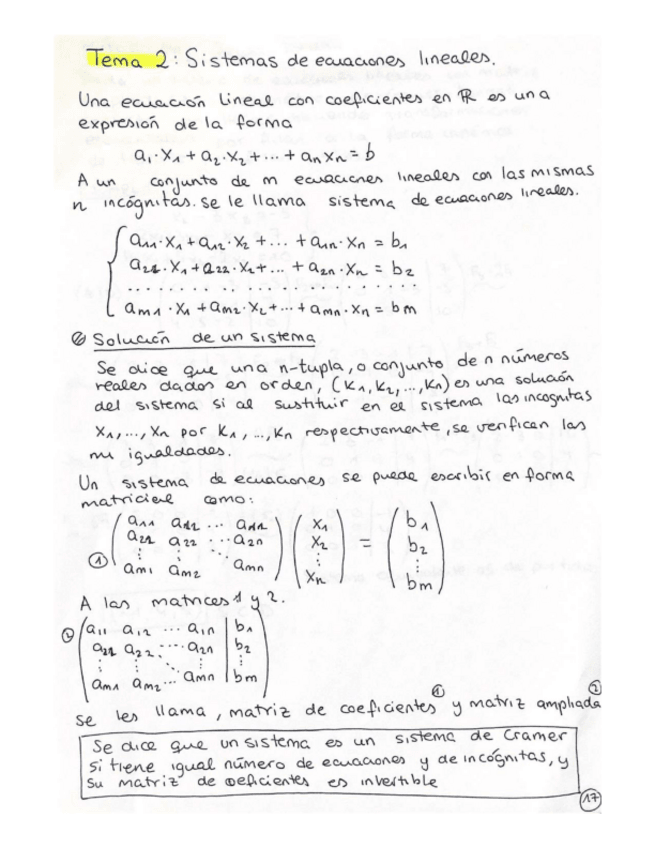 Tema 2: Sistemas de ecuaciones lineales.
Una ecuación lineal con coeficientes en ℝ es una
expresión de la forma
a₁·x₁ + a₂·x₂ + ... + aₙxₙ = b
A un conjunto de m ecuaciones lineales con las mismas
n incógnitas. se le llama sistema de ecuaciones lineales.
a₁₁·x₁ + a₁₂·x₂ + ... + a₁ₙ·xₙ = b₁
a₂₁·x₁ + a₂₂·x₂ + ... + a₂ₙ·xₙ = b₂
. . . . . . . . . . . . . . . . . .
aₘ₁·x₁ + aₘ₂·x₂ + ... + aₘₙ·xₙ = bₘ
Solución de un sistema
Se dice que una n-tupla, o conjunto de n números
reales dados en orden, (k₁, k₂, ..., kₙ) es una solución
del sistema si al sustituir en el sistema las incognitas
x₁, ..., xₙ por k₁, ..., kₙ respectivamente, se verifican las
m igualdades.
Un sistema de ecuaciones se puede escribir en forma
matricial como:
a₁₁ a₁₂ ... a₁ₙ x₁ b₁
a₂₁ a₂₂ ... a₂ₙ x₂ = b₂
① ⋮ ⋮ ⋮ ⋮
aₘ₁ aₘ₂ aₘₙ xₙ bₘ
A las matrices 1 y 2.
② a₁₁ a₁₂ ... a₁ₙ | b₁
a₂₁ a₂₂ ... a₂ₙ | b₂
⋮ ⋮ ⋱ ⋮ | ⋮
aₘ₁ aₘ₂ ... aₘₙ | bₘ
se les llama, matriz de coeficientes ① y matriz ampliada ②
Se dice que un sistema es un sistema de Cramer
si tiene igual número de ecuaciones y de incógnitas, y
su matriz de coeficientes es invertible
17